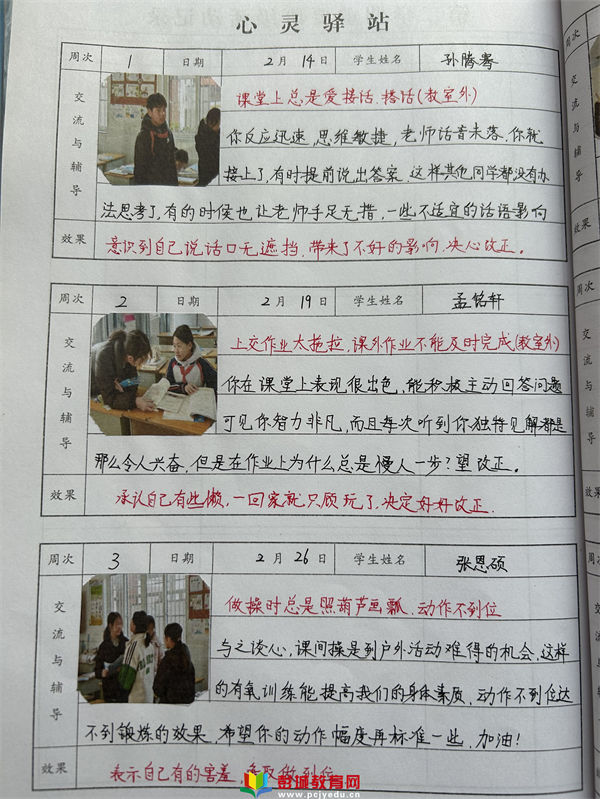 心灵驿站
周次 1 日期 2月14日 学生姓名 孙腾骞
交流与辅导
课堂上总是爱接话、搭话(教室外)
你反应迅速,思维敏捷,老师话音未落,你就
接上了,有时提前说出答案,这样其他同学都没有办
法思考了,有的时候也让老师手足无措,一些不适宜的话语影响
效果 意识到自己说话口无遮挡,带来了不好的影响,决心改正。
周次 2 日期 2月19日 学生姓名 孟铭轩
交流与辅导
上交作业太拖拉,课外作业不能及时完成(教室外)
你在课堂上表现很出色,能积极主动回答问题
可见你智力非凡,而且每次听到你独特见解都是
那么令人兴奋,但是在作业上为什么总是慢人一步?望改正。
效果 承认自己有些懒,一回家就只顾玩了,决定好好改正.
周次 3 日期 2月26日 学生姓名 张恩硕
交流与辅导
做操时总是照葫芦画瓢,动作不到位
与之谈心,课间操是到户外活动难得的机会,这样
的有氧训练能提高我们的身体素质,动作不到位达
不到锻炼的效果,希望你的动作幅度再标准一些,加油!
效果 表示自己有的害羞,争取做到位
彭城教育网
www.pcjyedu.cn